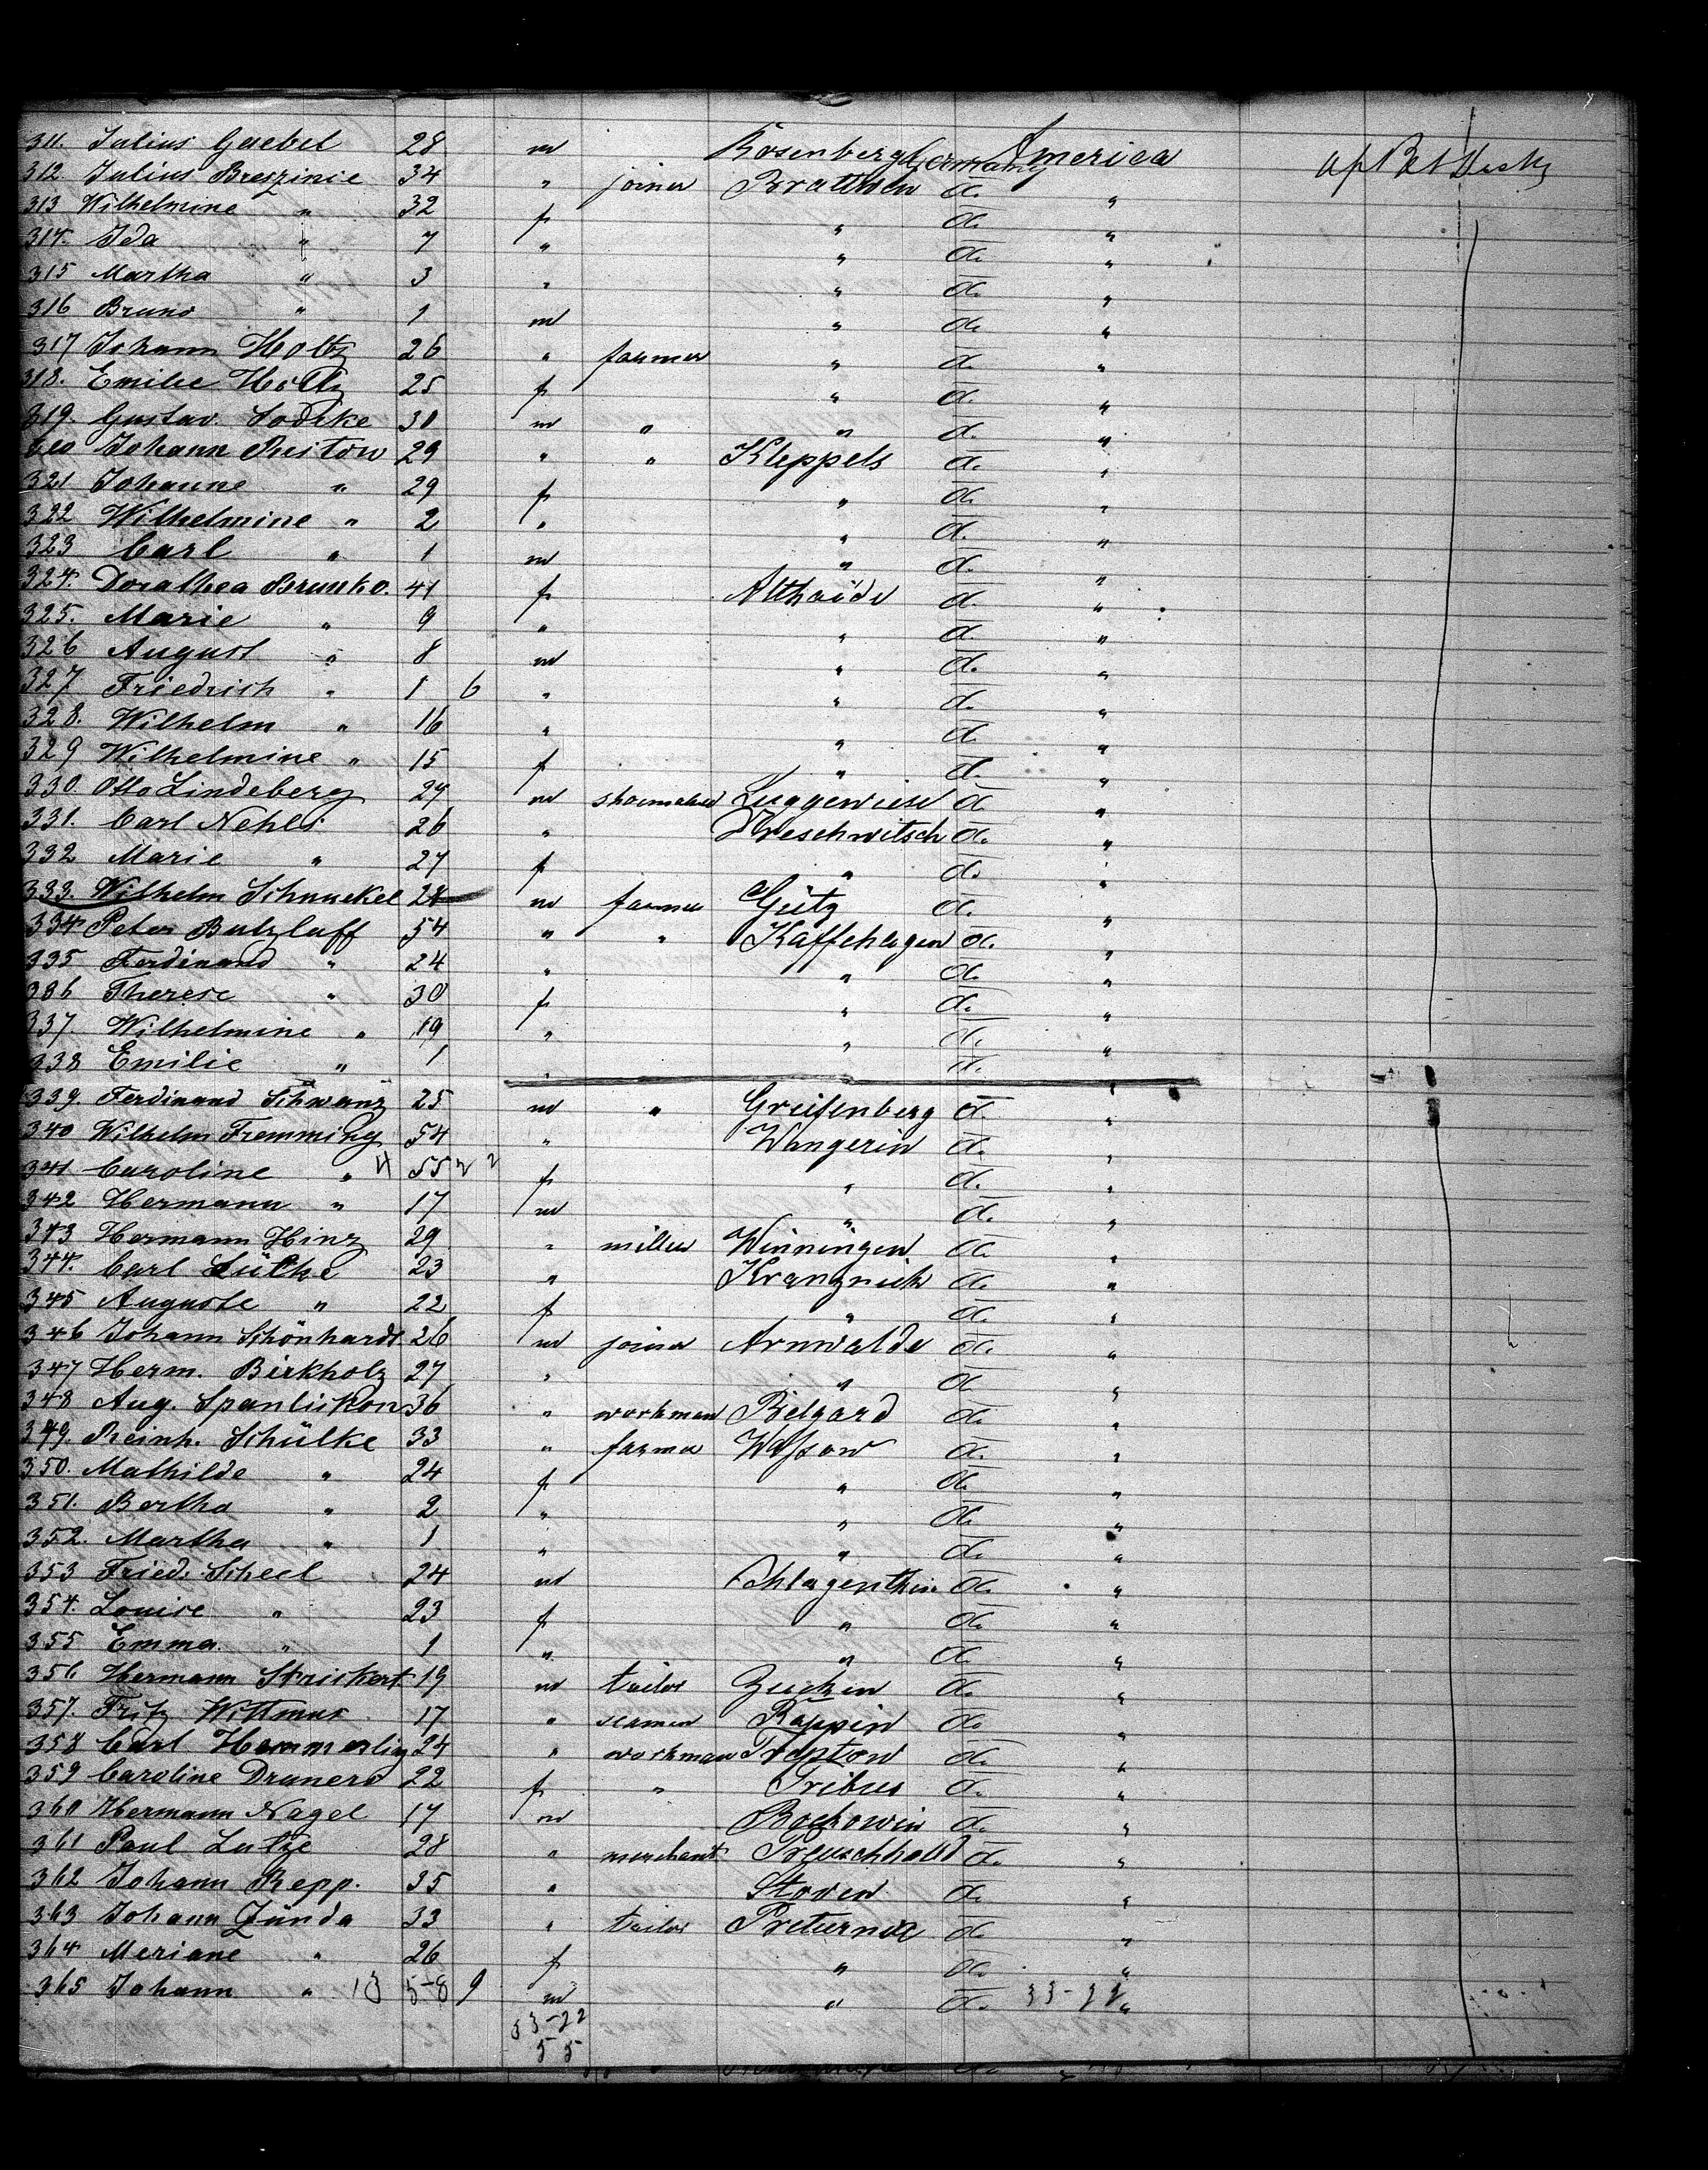 311. Julius Gaebel 28 m Rosenberg Germany America
312. Julius Breszinie 34 " joiner Brattwin do. "
313 Wilhelmine " 32 f " do. "
314. Ida " 7 " " do. "
315 Martha " 3 " " do. "
316 Bruno " 1 m " do. "
317 Johann Holtz 26 " farmer " do. "
318. Emilie Holtz 25 f " do. "
319. Gustav. 30 m " " do. "
Johann Ristow 29 " " Kleppels do. "
321 Johanne " 29 f " do. "
322 Wilhelmine " 2 " " do. "
323 Carl " 1 m " do. "
324. Dorathea Brunko. 41 f Althaide do. "
325. Marie " 9 " " do. "
326 August " 8 m " do. "
327 Friedrich " 1 6 " " do. "
328. Wilhelm " 16 " " do. "
329 Wilhelmine " 15 f " do. "
330. Otto Lindeberg 27 m shoemaker Luggewiese do. "
331. Carl Nehls 26 " do. "
332 Marie " 27 f " do. "
333. Wilhelm Schmuckel m farmer Geitz do. "
334 Peter Butzlaff 54 " " Kaffehagen do. "
335 Ferdinand " 24 " " do. "
336 Therese " 30 f " do. "
337. Wilhelmine " 19 " " do. "
338 Emilie " 1 " do.
339. Ferdinand Schwanz 25 m " Greifenberg do. "
340 Wilhelm Fremming 54 " Wangerin do. "
341 Caroline " 4 55 2 2 f " do. "
342 Hermann " 17 m " do. "
343 Hermann Hinz 29 " miller Winningen do. "
344. Carl Lütke 23 " Krangnick do. "
345 Auguste " 22 f " do. "
346 Johann Schönhardt 26 m joiner Arnwalde do. "
347 Herm. Birkholz 27 " " do. "
348 Aug. 36 " workman Belgard do. "
349. Reinh. Schülke 33 " farmer Wussow do. "
350. Mathilde " 24 f " do. "
351. Bertha " 2 " " do. "
352. Martha " 1 " " do. "
353 Fried. Scheel 24 m Schlagenthin do. "
354. Louise " 23 f " do. "
355 Emma. " 1 " " do. "
356 Hermann Strickert 19 m tailor do. "
357. Fritz Wittmus 17 " seamen Rappin do. "
358 Carl Hemmerling 24 " workman Treptow do. "
359 Caroline 22 f " Tribus do. "
360 Hermann Nagel 17 m Bochowin do. "
361 Paul Lutze 28 " merchant do. "
362 Johann Repp. 35 " Stoven do. "
363 Johann Zünda 33 " tailor do. "
364 Meriane " 26 f " do. "
365 Johann " 13 5-8 9 m " do. 33-22 "
33-22
55